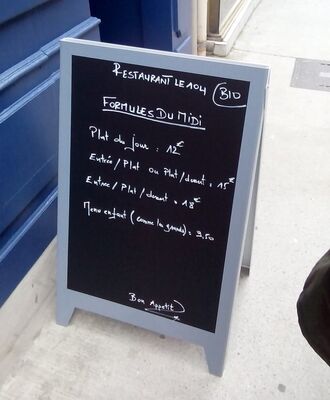 RESTAURANT LE 104
BIO
FORMULES DU MIDI
Plat du jour : 12€
Entrée / Plat ou Plat / dessert : 15€
Entrée / Plat / dessert : 18€
Menu enfant (comme les grands) : 9,50
Bon Appetit